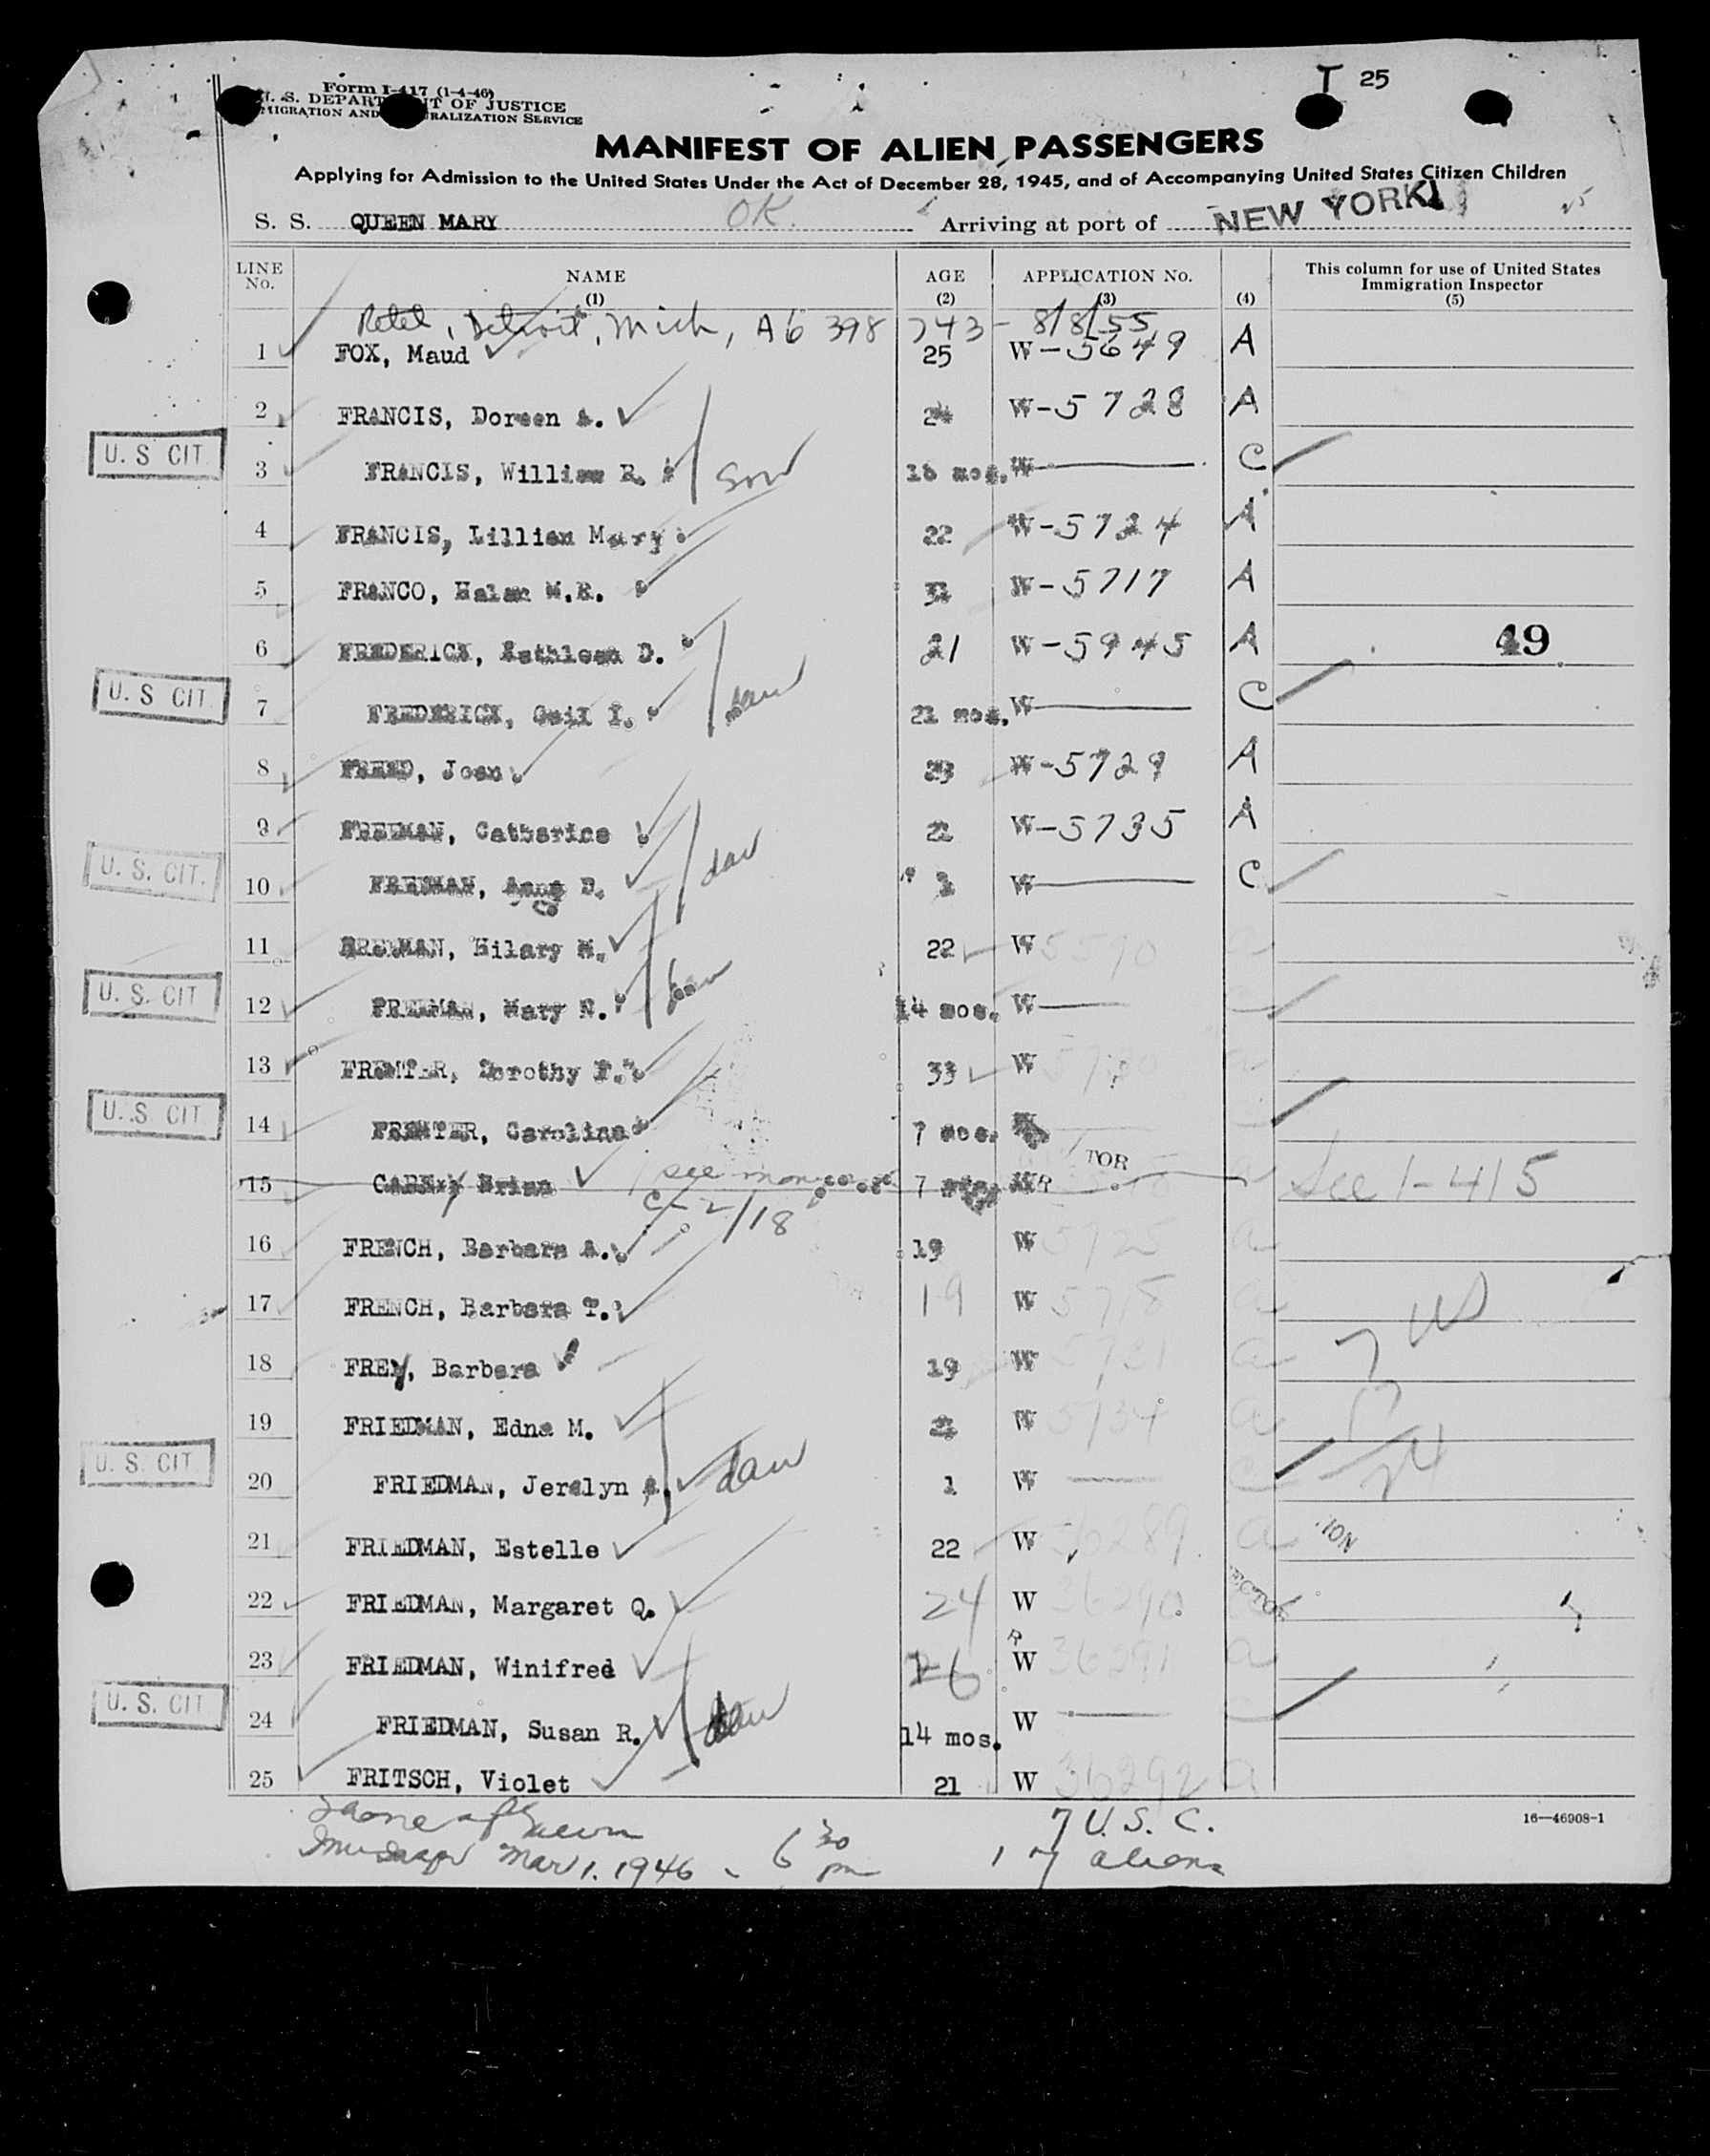 T 25
Form I-417 (1-4-46)
U. S. DEPARTMENT OF JUSTICE
IMMIGRATION AND NATURALIZATION SERVICE
MANIFEST OF ALIEN PASSENGERS
Applying for Admission to the United States Under the Act of December 28, 1945, and of Accompanying United States Citizen Children
S. S. QUEEN MARY OK. Arriving at port of NEW YORK
LINE No. NAME (1) AGE (2) APPLICATION No. (3) (4) This column for use of United States Immigration Inspector (5)
Detroit, Mich, A6 398 743 - 8/8/55
1 FOX, Maud 25 W-5649 A
2 FRANCIS, Doreen A. 24 W-5728 A
U. S CIT 3 FRANCIS, William R. son mos. W C
4 FRANCIS, Lillian Mary 22 W-5724 A
5 FRANCO, Helen M.E. 31 W-5717 A
6 FREDERICK, Kathleen D. 21 W-5945 A 49
U. S CIT 7 FREDERICK, Gail I. dau 21 mos. W C
8 FREED, Joan 23 W-5729 A
9 FREEMAN, Catherine W-5735 A
U. S. CIT. 10 FREEMAN, D. dau W C
11 FREEMAN, Hilary M. 22 W 5590 a
U. S. CIT 12 FREEMAN, Mary N. dau 14 mos. W
13 Dorothy F. 33 W a
U. S CIT 14 Caroline 7 mos. W
15 CAREY Brian see 7 W See 1-415
C-2/18
16 FRENCH, Barbara A. 19 W 5725 a
17 FRENCH, Barbara T. 19 W a
18 FREY, Barbara 19 W 5731 a 7 US
19 FRIEDMAN, Edna M. W 5734 a 17
U. S. CIT 20 FRIEDMAN, Jeralyn A. dau 1 W C 24
21 FRIEDMAN, Estelle 22 W 36289 a
22 FRIEDMAN, Margaret Q. 24 W 36290
23 FRIEDMAN, Winifred 26 W 36291 a
U. S. CIT 24 FRIEDMAN, Susan R. dau 14 mos. W C
25 FRITSCH, Violet 21 W 36292 a
7 U. S. C. 16—46908-1
Mar 1. 1946 - 6 30 pm 17 aliens